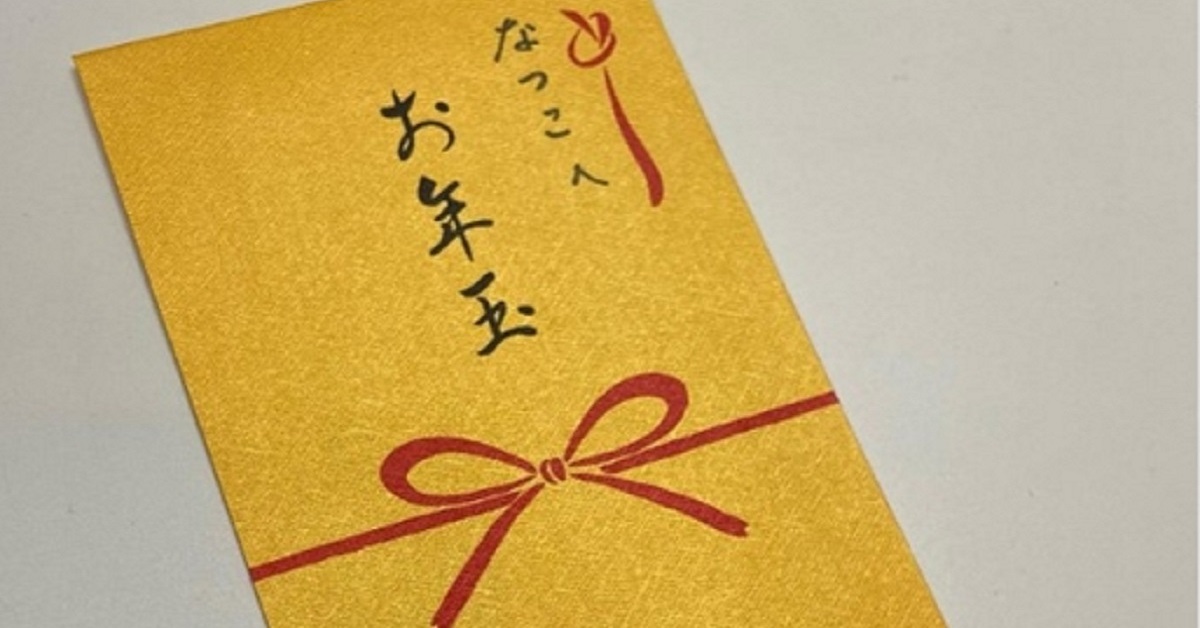 なつこへ
お年玉